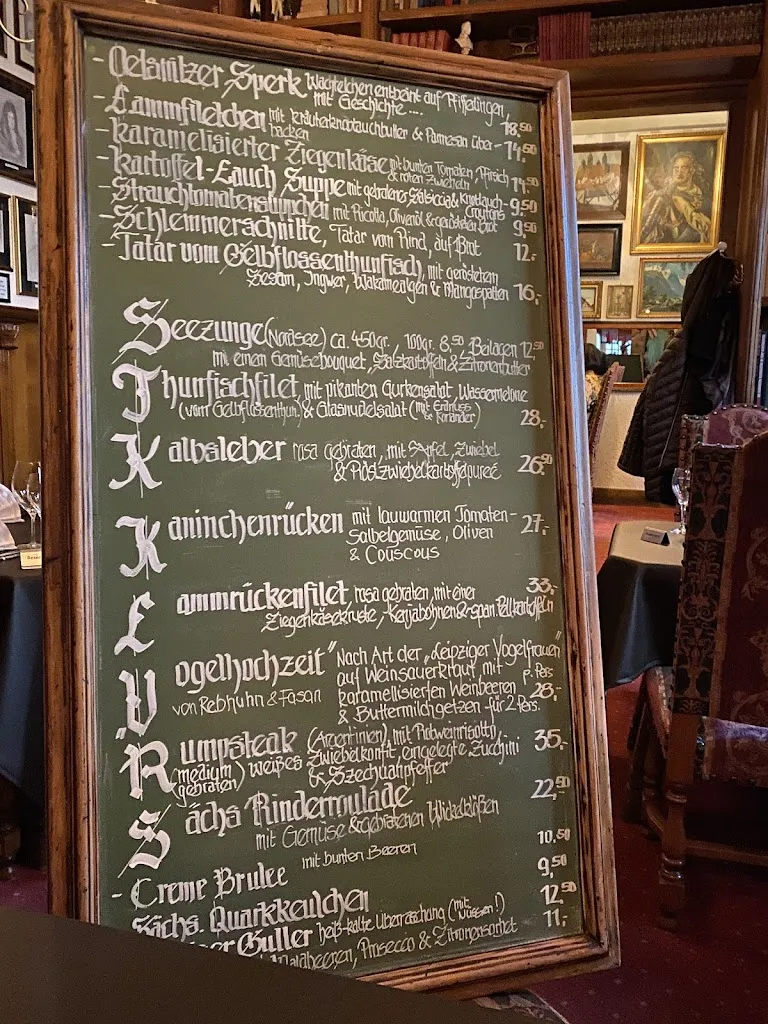 - Oelsnitzer Sperk Wachtelchen entbeint auf Pfifferlingen,
mit Geschichte .... 18.50
- Lammfiletchen mit Kräuterknoblauchbutter & Parmesan über-
backen 14.50
- karamelisierter Ziegenkäse mit bunten Tomaten, Pfirsich
& roten Zwiebeln 14.50
- Kartoffel-Lauch Suppe mit gebratener Salsiccia & Knoblauch-
Croutons 9.50
- Strauchtomatensüppchen mit Ricotta, Olivenöl & geröstetem Brot 9.50
- Schlemmerschnitte, Tatar vom Rind, auf Brot 12.-
- Tatar vom Gelbflossenthunfisch, mit geröstetem
Sesam, Ingwer, Wakamealgen & Mangospalten 16,-
Seezunge (Nordsee) ca. 450gr., 100gr. 8.50, Beilagen 12,50
mit einem Gemüsebouquet, Salzkartoffeln & Zitronenbutter
Thunfischfilet mit pikanten Gurkensalat, Wassermelone
(vom Gelbflossenthun) & Glasnudelsalat (mit Erdnuss & Koriander) 28,-
Kalbsleber rosa gebraten, mit Apfel, Zwiebel
& Röstzwiebelkartoffelpureé 26.50
Kaninchenrücken mit lauwarmen Tomaten- 27,-
Salbeigemüse, Oliven
& Couscous
Lammrückenfilet, rosa gebraten, mit einer 33,-
Ziegenkäsekruste, Kenjabohnen & span. Pellkartoffeln
Vogelhochzeit" Nach Art der „Leipziger Vogelfrauen"
auf Weinsauerkraut mit p. Pers
von Rebhuhn & Fasan karamellisierten Weinbeeren 28,-
& Buttermilchgetzen für 2 Pers.
Rumpsteak (Argentinien), mit Rotweinrisotto, 35,-
(medium gebraten) weißes Zwiebelkonfit, eingelegte Zucchini
& Szechuanpfeffer
Sächs Rinderroulade 22,50
mit Gemüse & gebratenen Wickelklößen
mit bunten Beeren 10.50
- Creme Brulee 9,50
Sächs. Quarkkeulchen 12,50
heiß-kalte Überraschung (mit Nüssen!) 11,-
Prosecco & Zitronensorbet